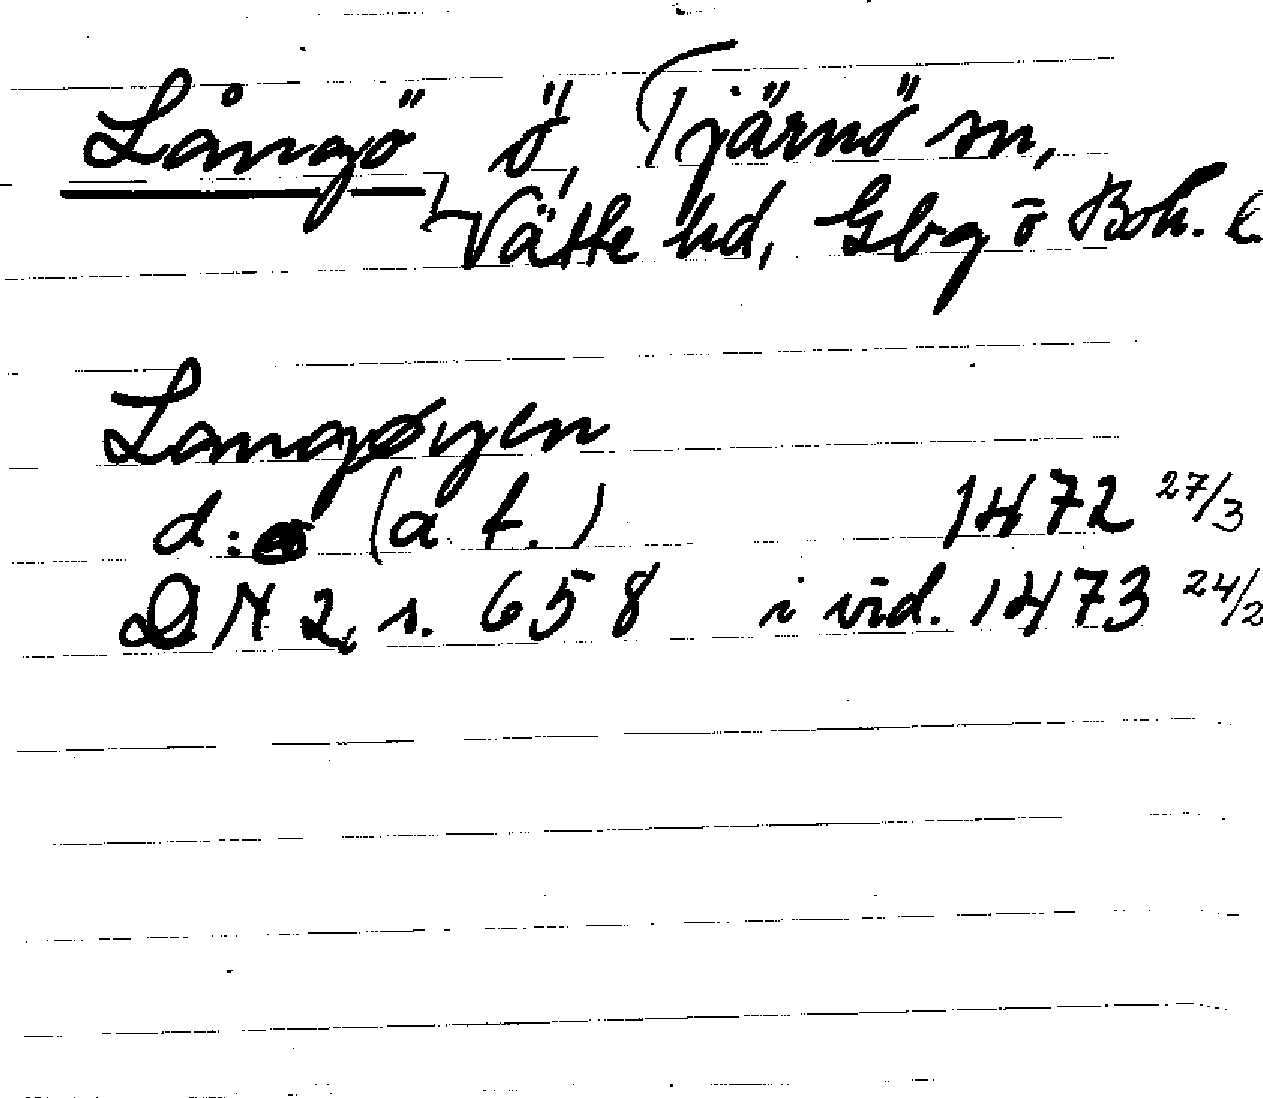 Långö ö, Tjärnö sn,
Vätte hd, Gbg o Boh. l
Langøyen
d:o (a. t.) 1472 27/3
DN 2, s. 658 i vid. 1473 24/2